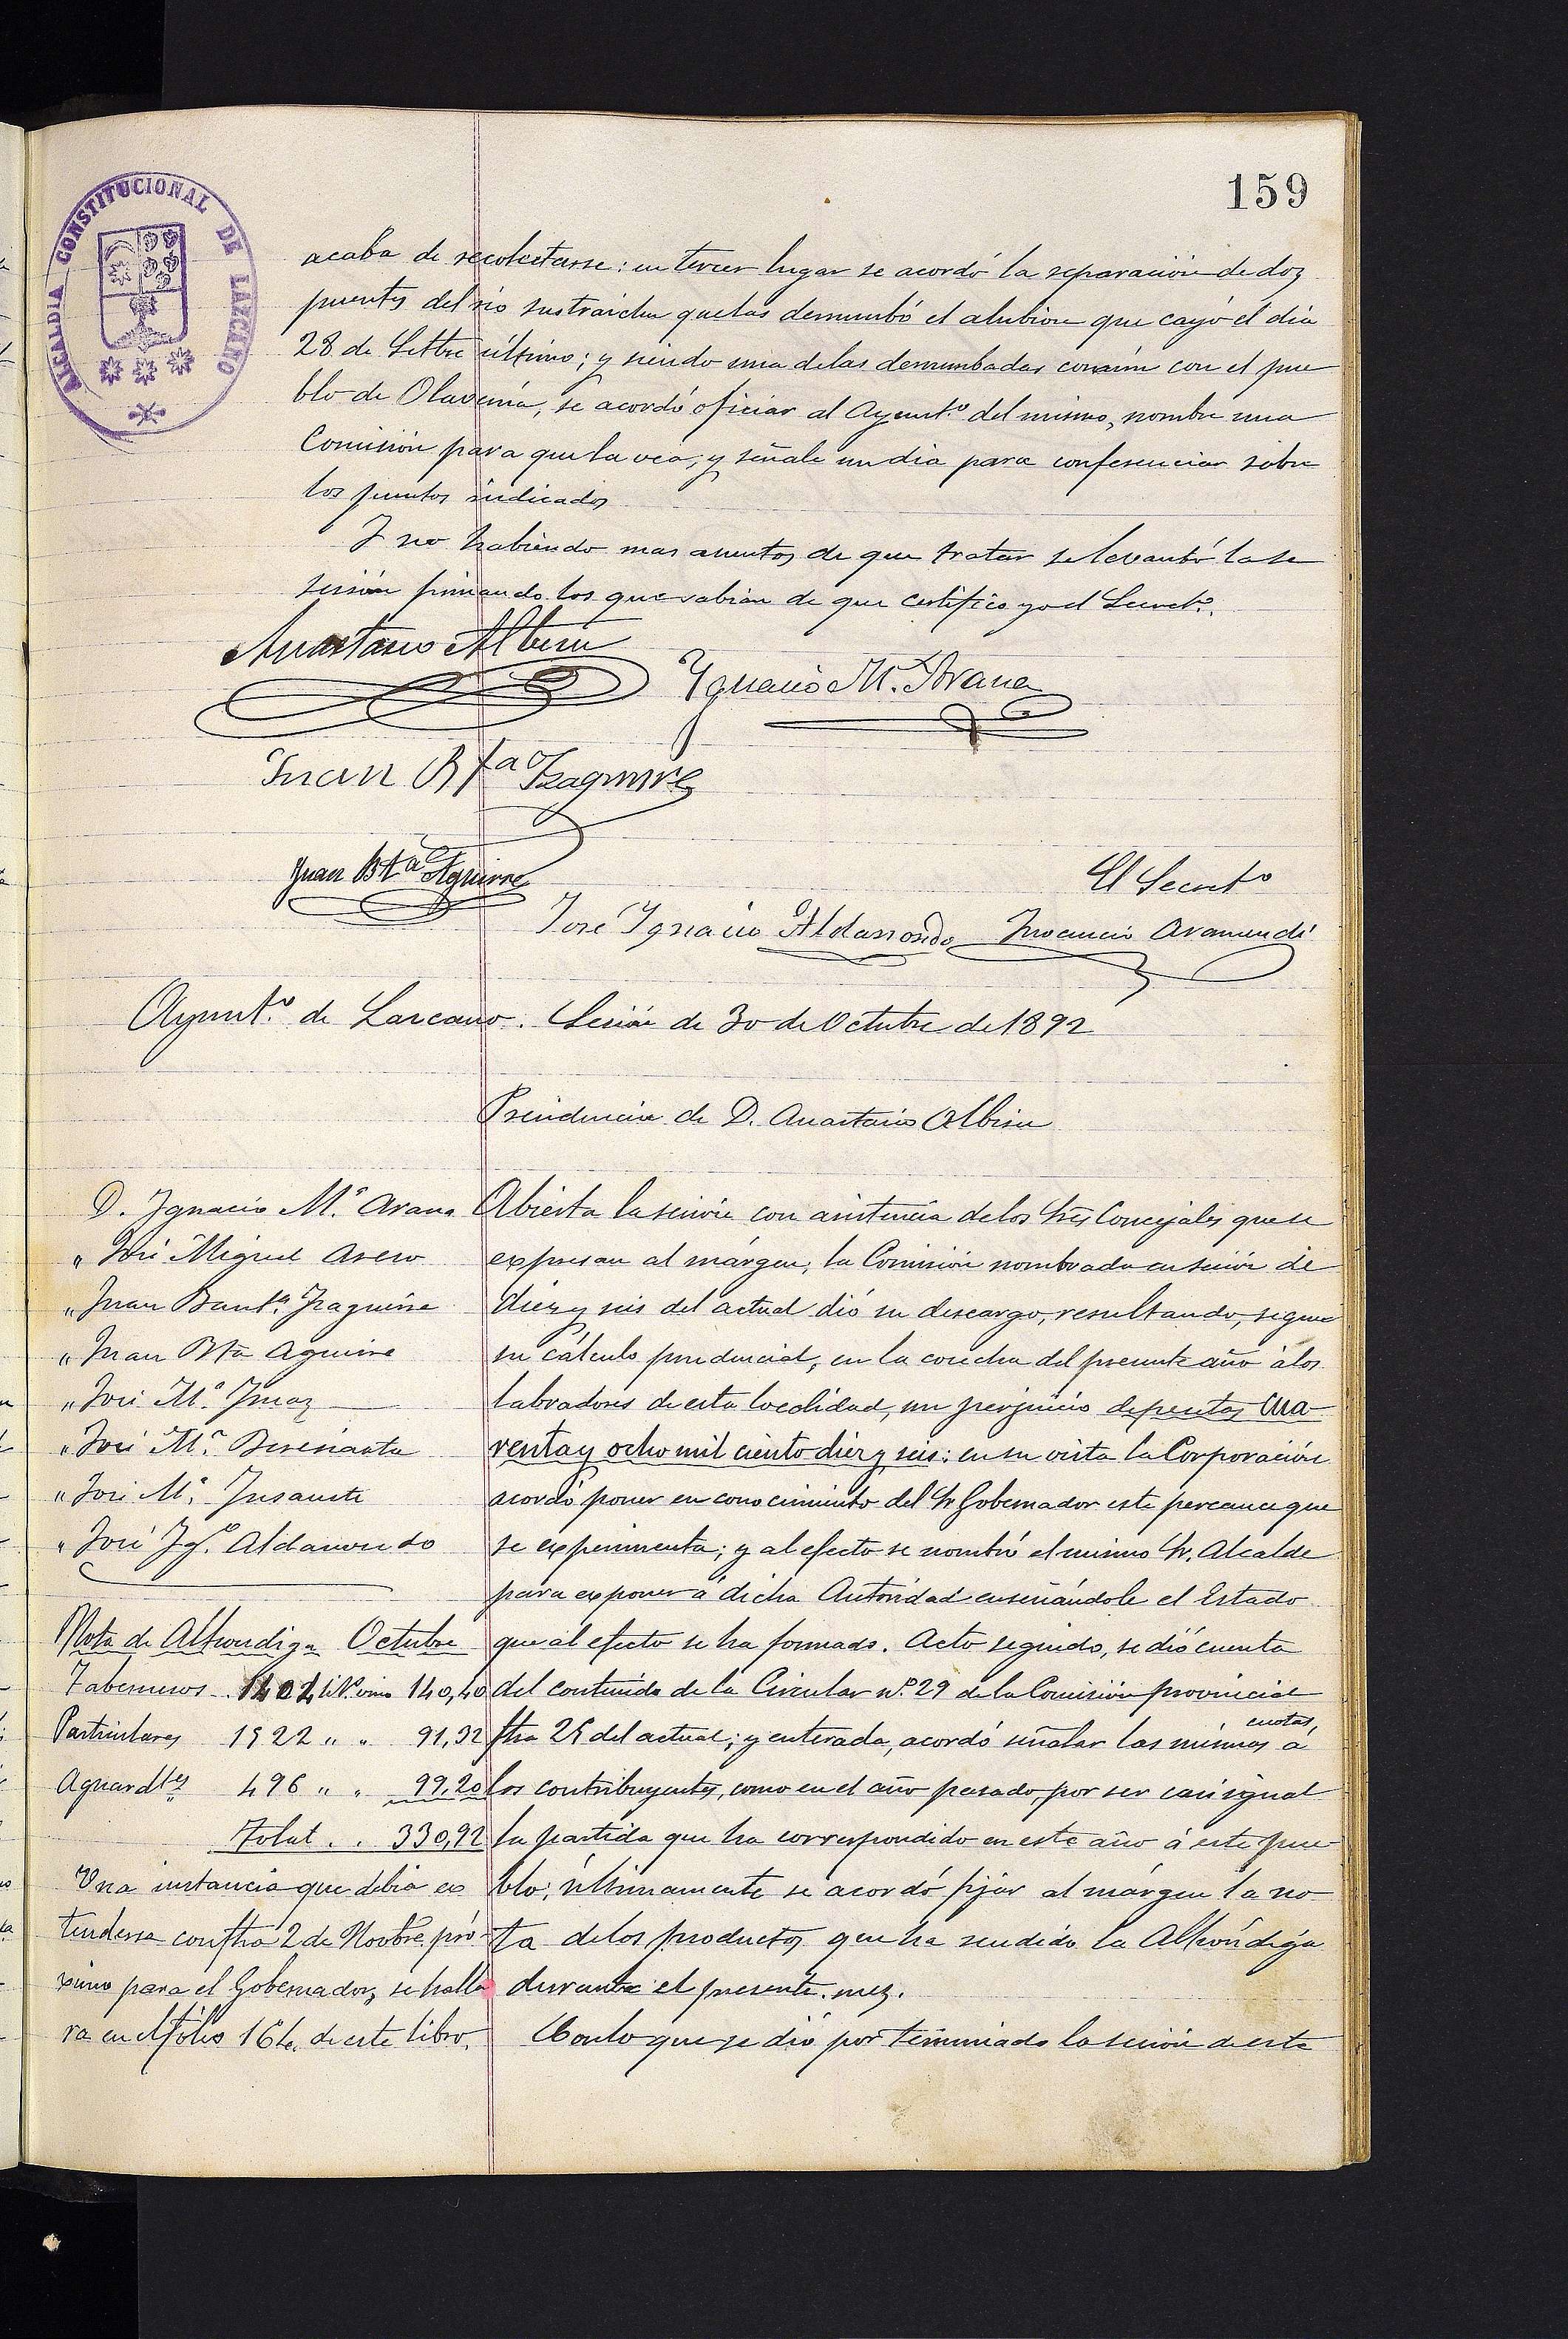 159
ALCALDIA CONSTITUCIONAL DE LAZCANO
acaba de recolectarse: en tercer lugar se acordó la reparación de doz
puentes del rio que las derrumbó el alubion que cayó el dia
28 de Settbre último; y siendo una de las derrumbadas comun con el pue
blo de Olaverria, se acordó oficiar al Ayunt.º del mismo, nombre una
Comisión para que la vea, y señale un dia para conferenciar sobre
los puntos indicados
Y no habiendo mas asuntos de que tratar se levantó la se
sesión firmando los que sabian de que certifico yo el Secret.º
Anastasio Albisu
Ygnacio M. Arana
Juan Bta Izaguirre
Juan Bta Aguirre
El Secretº
José Ygnacio Aldasorondo Inocencio Aramendi
Ayunt.º de Lazcano. Sesión de 30 de Octubre de 1892
Presidencia de D. Anastasio Albisu
D. Ygnacio M.ª Arana
" José Miguel
" Juan Baut.ª Izaguirre
" Juan Bta Aguirre
" José M.ª Imaz
" José M.ª Beresiartu
" José M.ª Insausti
" José Ygº. Aldasorondo
Nota de Alhondiga Octubre
Taberneros 1404 lit.s vino 140,40
Particulares 1522 " " 91,32
Aguardtes 496 " " 99,20
Total . . 330,92
Una instancia que debia ex
tenderse con fha 2 de Novbre pró-
ximo para el Gobernador, se halla
ra en el fólio 164. de este libro.
Abierta la sesión con asistencia de los Sres Concejales que se
expresan al márgen, la Comisión nombrada en sesión de
diez y seis del actual dió su descargo, resultando, segun
su cálculo prudencial, en la cosecha del presente año á los
labradores de esta localidad, un perjuicio de pesetas cua-
renta y ocho mil ciento diez y seis: en su vista la Corporación
acordó poner en conocimiento del Sr Gobernador este percance que
se experimenta; y al efecto se nombró el mismo Sr. Alcalde
para exponer á dicha Autoridad enseñándole el Estado
que al efecto se ha formado. Acto seguido, se dió cuenta
del contenido de la Circular nº. 29 de la Comisión provincial
fha 25 del actual; y enterada, acordó señalar las mismas cuotas, á
los contribuyentes, como en el año pasado, por ser casi igual
la partida que ha correspondido en este año á este pue-
blo; últimamente se acordó fijar al márgen la no-
ta de los productos que ha rendido la Alhóndiga
durante el presente mez.
Con lo que se dió por terminado la sesión de este